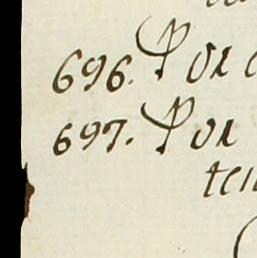 696. Por
697. Por
ten